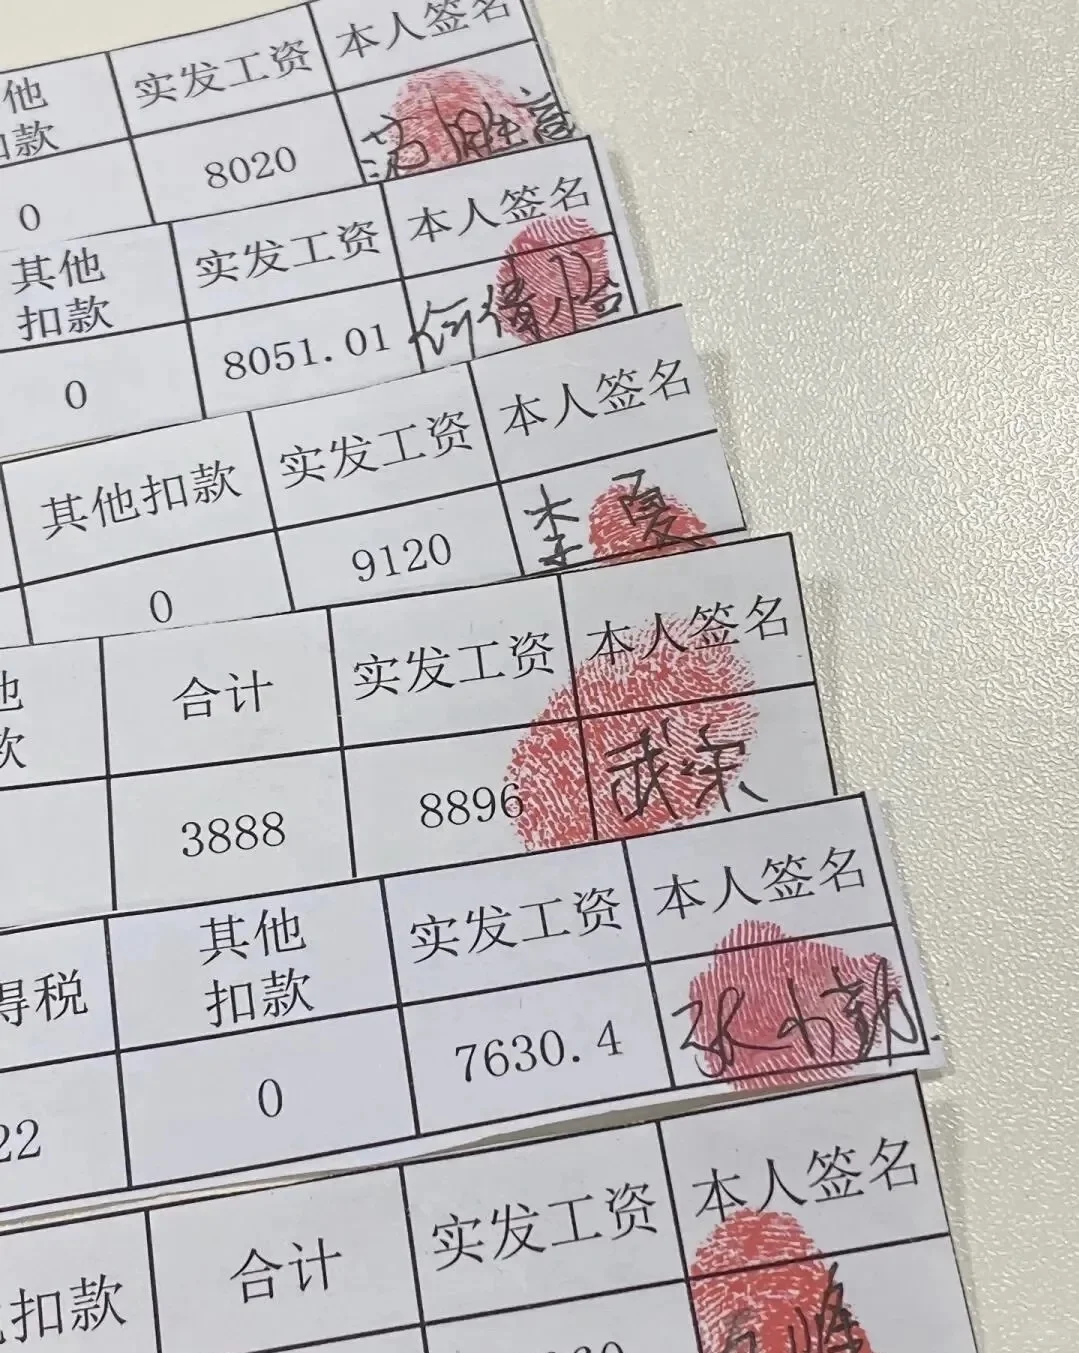 他 实发工资 本人签名
扣款
0 8020
其他 实发工资 本人签名
扣款
0 8051.01 何倩怡
其他扣款 实发工资 本人签名
0 9120 李夏
他 合计 实发工资 本人签名
款
3888 8896 武宗
得税 其他 实发工资 本人签名
扣款
22 0 7630.4 张小勤
扣款 合计 实发工资 本人签名